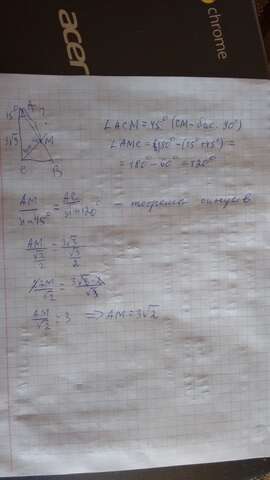 chrome
acer
A
15°
3√3
M
C
B
∠ACM = 45° (CM - бис. 90°)
∠AMC = 180° - (15° + 45°) =
= 180° - 60° = 120°
AM / sin 45° = AC / sin 120° - теорема синусов
AM / (√2/2) = 3√3 / (√3/2)
2AM / √2 = 3√3 · 2 / √3
AM / √2 = 3 => AM = 3√2